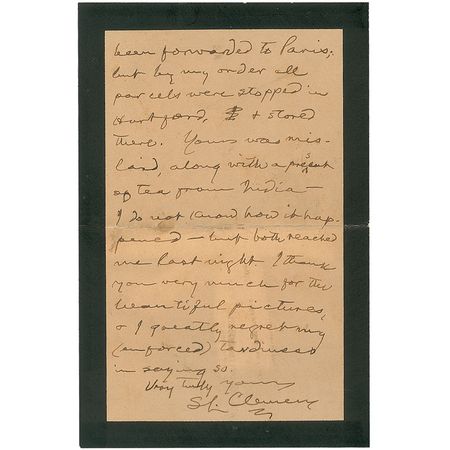 been forwarded to Paris;
but by my order all
parcels were stopped in
Hartford, & stored
there. Yours was mis-
laid, along with a present
of tea from India—
I do not know how it hap-
pened — but both reached
me last night. I thank
you very much for the
beautiful pictures,
& I greatly regret my
(enforced) tardiness
in saying so.
Very truly yours
SL. Clemens